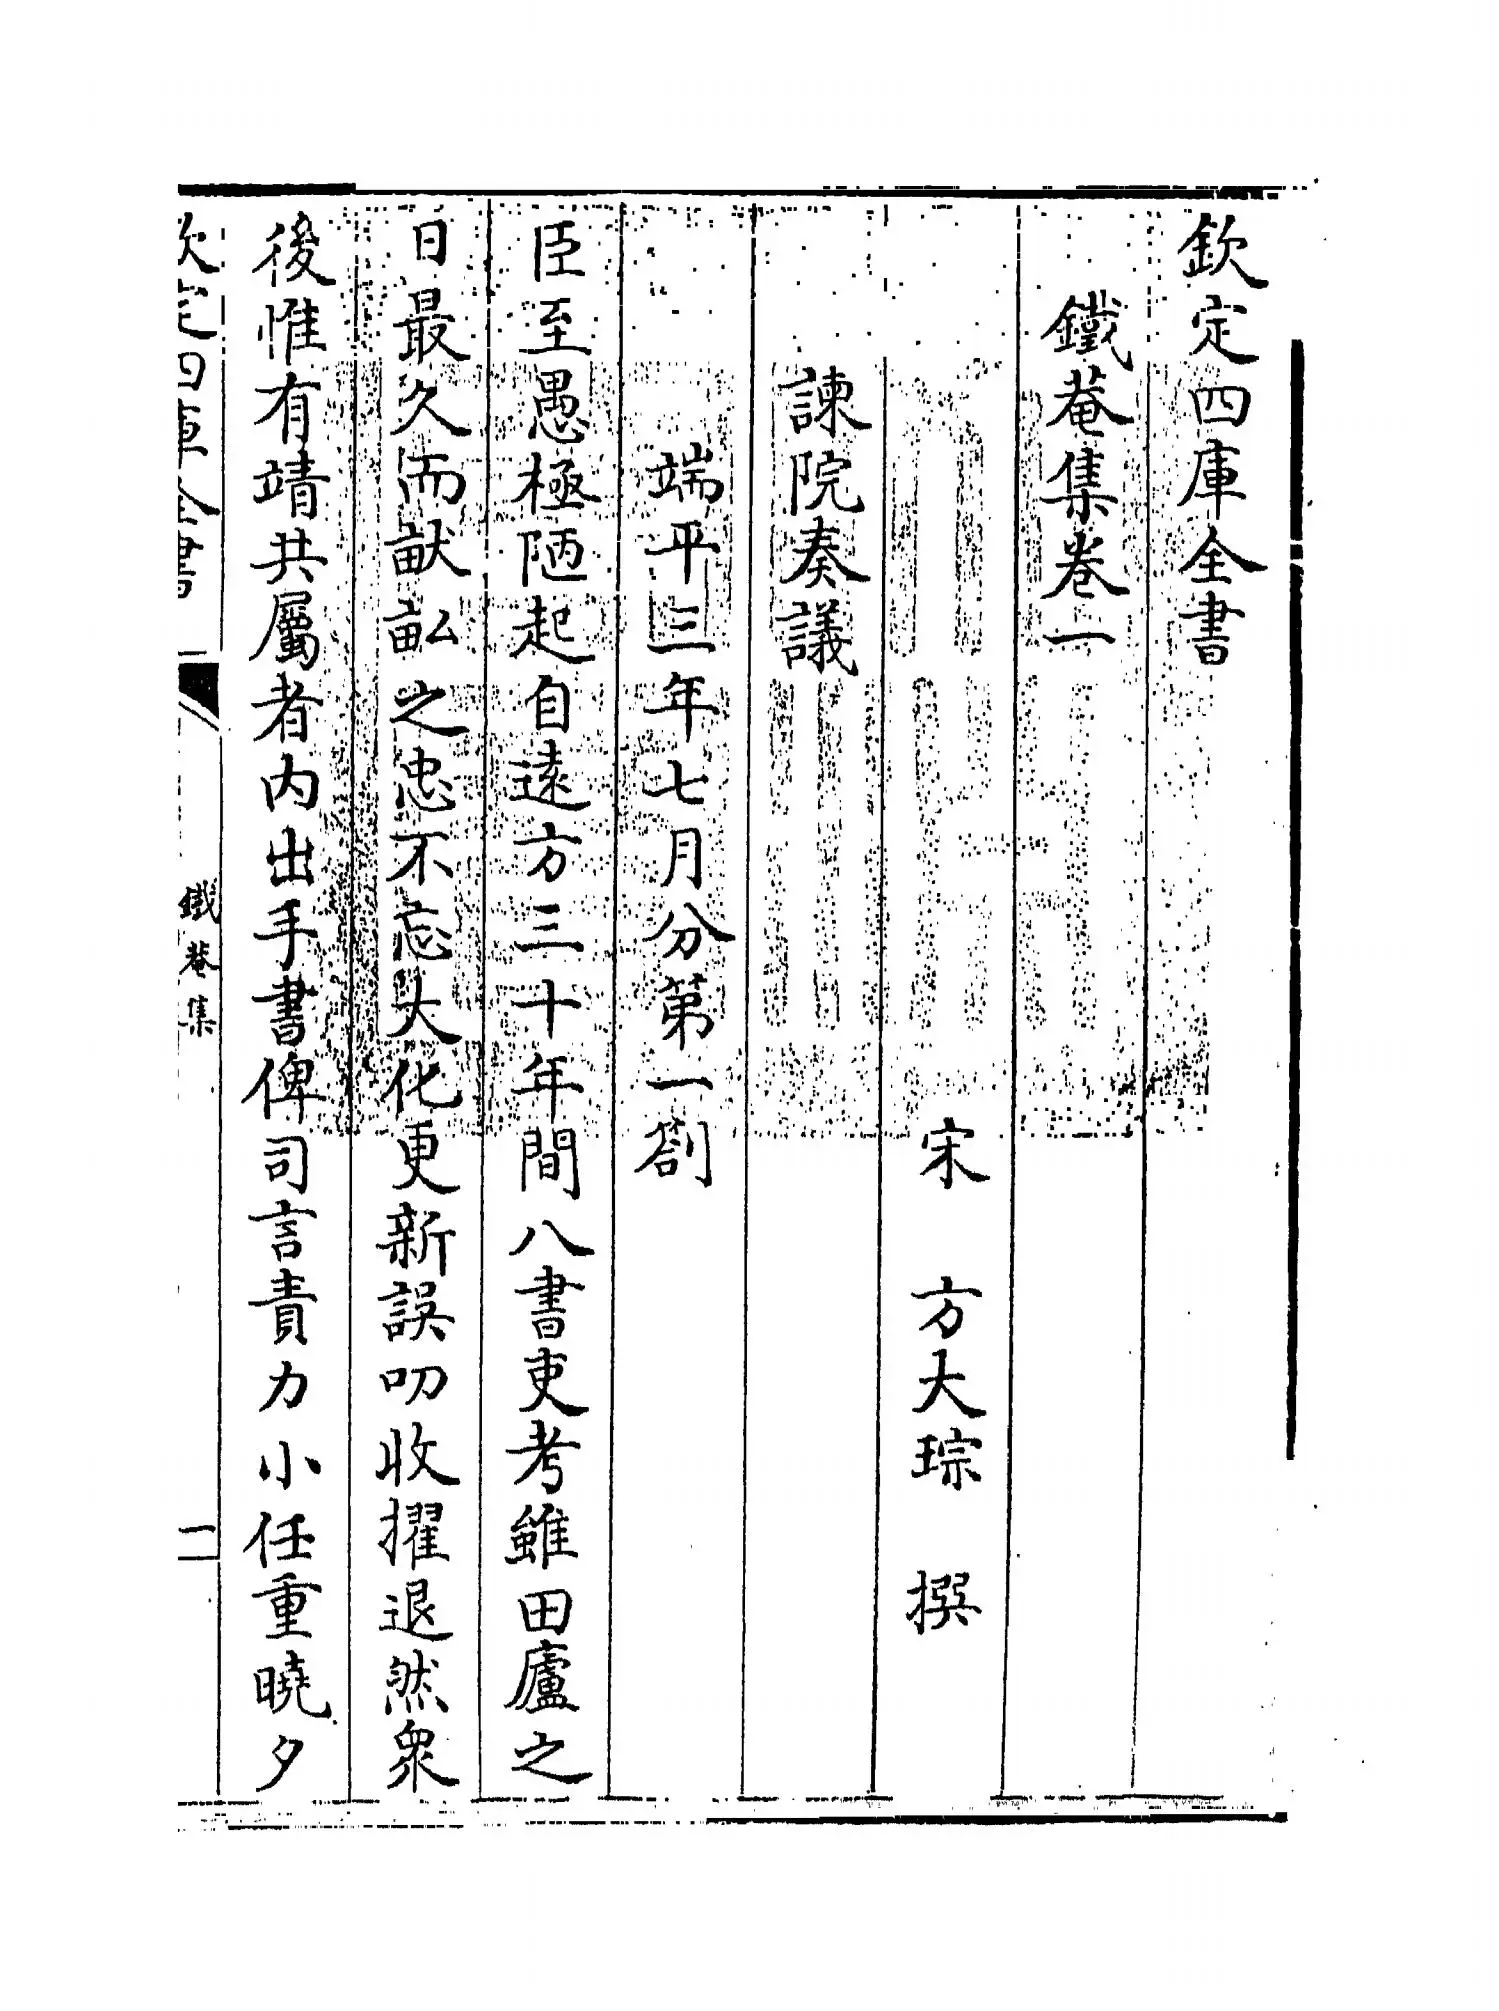 欽定四庫全書
鐵菴集卷一
宋 方大琮 撰
諫院奏議
端平三年七月分第一劄
臣至愚極陋起自遠方三十年間八書吏考雖田廬之
日最久而畎畝之忠不忘大化更新誤叨收擢退然衆
後惟有靖共屬者内出手書俾司言責力小任重曉夕
欽定四庫全書
鐵菴集
一